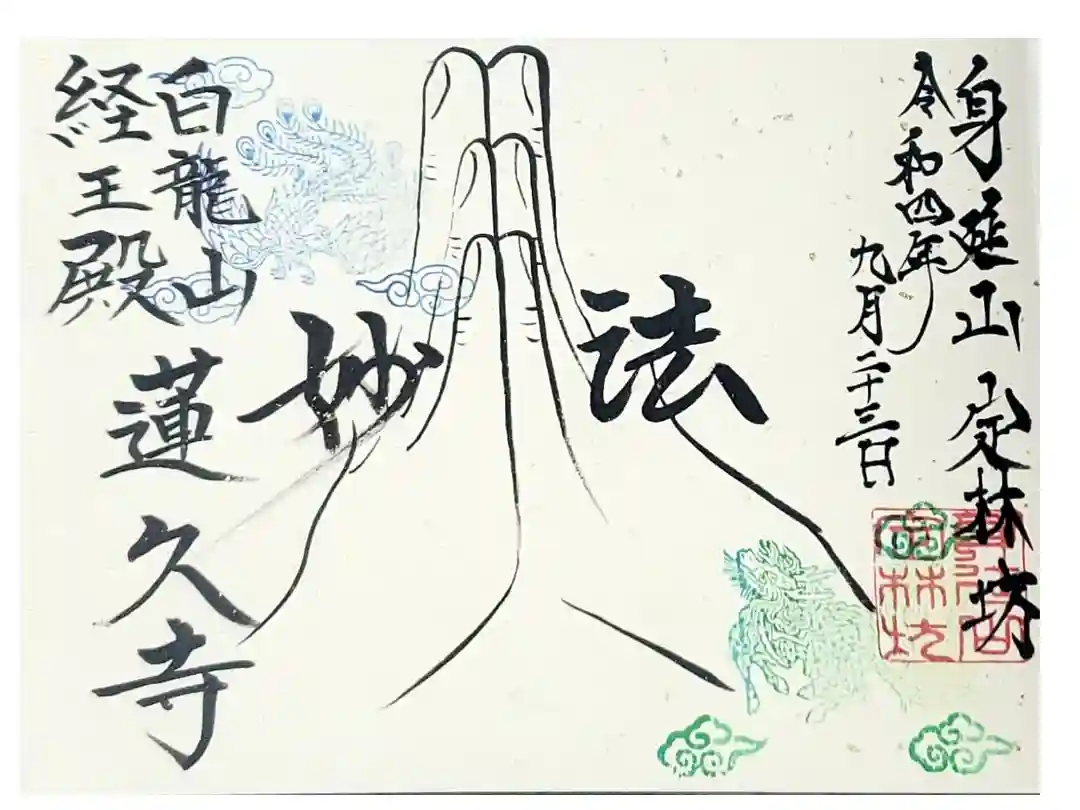 身延山 定林坊
令和四年
九月二十三日
妙法
白龍山
経王殿
蓮久寺